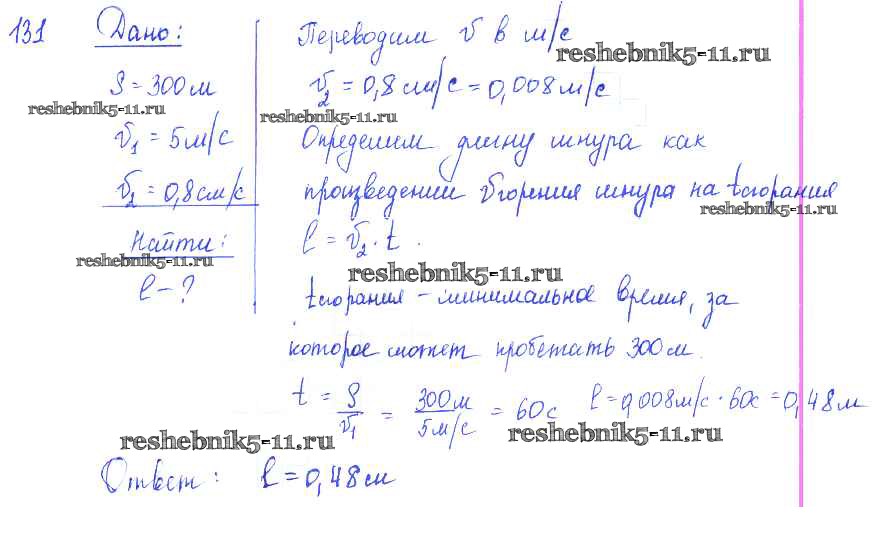 131 Дано:
S = 300 м
reshebnik5-11.ru
v₁ = 5 м/с
v₂ = 0,8 см/с
Найти:
reshebnik5-11.ru
l - ?
Переводим v в м/с
reshebnik5-11.ru
v₂ = 0,8 см/с = 0,008 м/с
reshebnik5-11.ru
Определим длину шнура как
произведении v горения шнура на t сгорания
reshebnik5-11.ru
l = v₂ · t.
reshebnik5-11.ru
t сгорания - минимальное время, за
которое может пробежать 300 м.
t = S/v₁ = 300 м/5 м/с = 60 с l = 0,008 м/с · 60 с = 0,48 м
reshebnik5-11.ru reshebnik5-11.ru
Ответ: l = 0,48 м